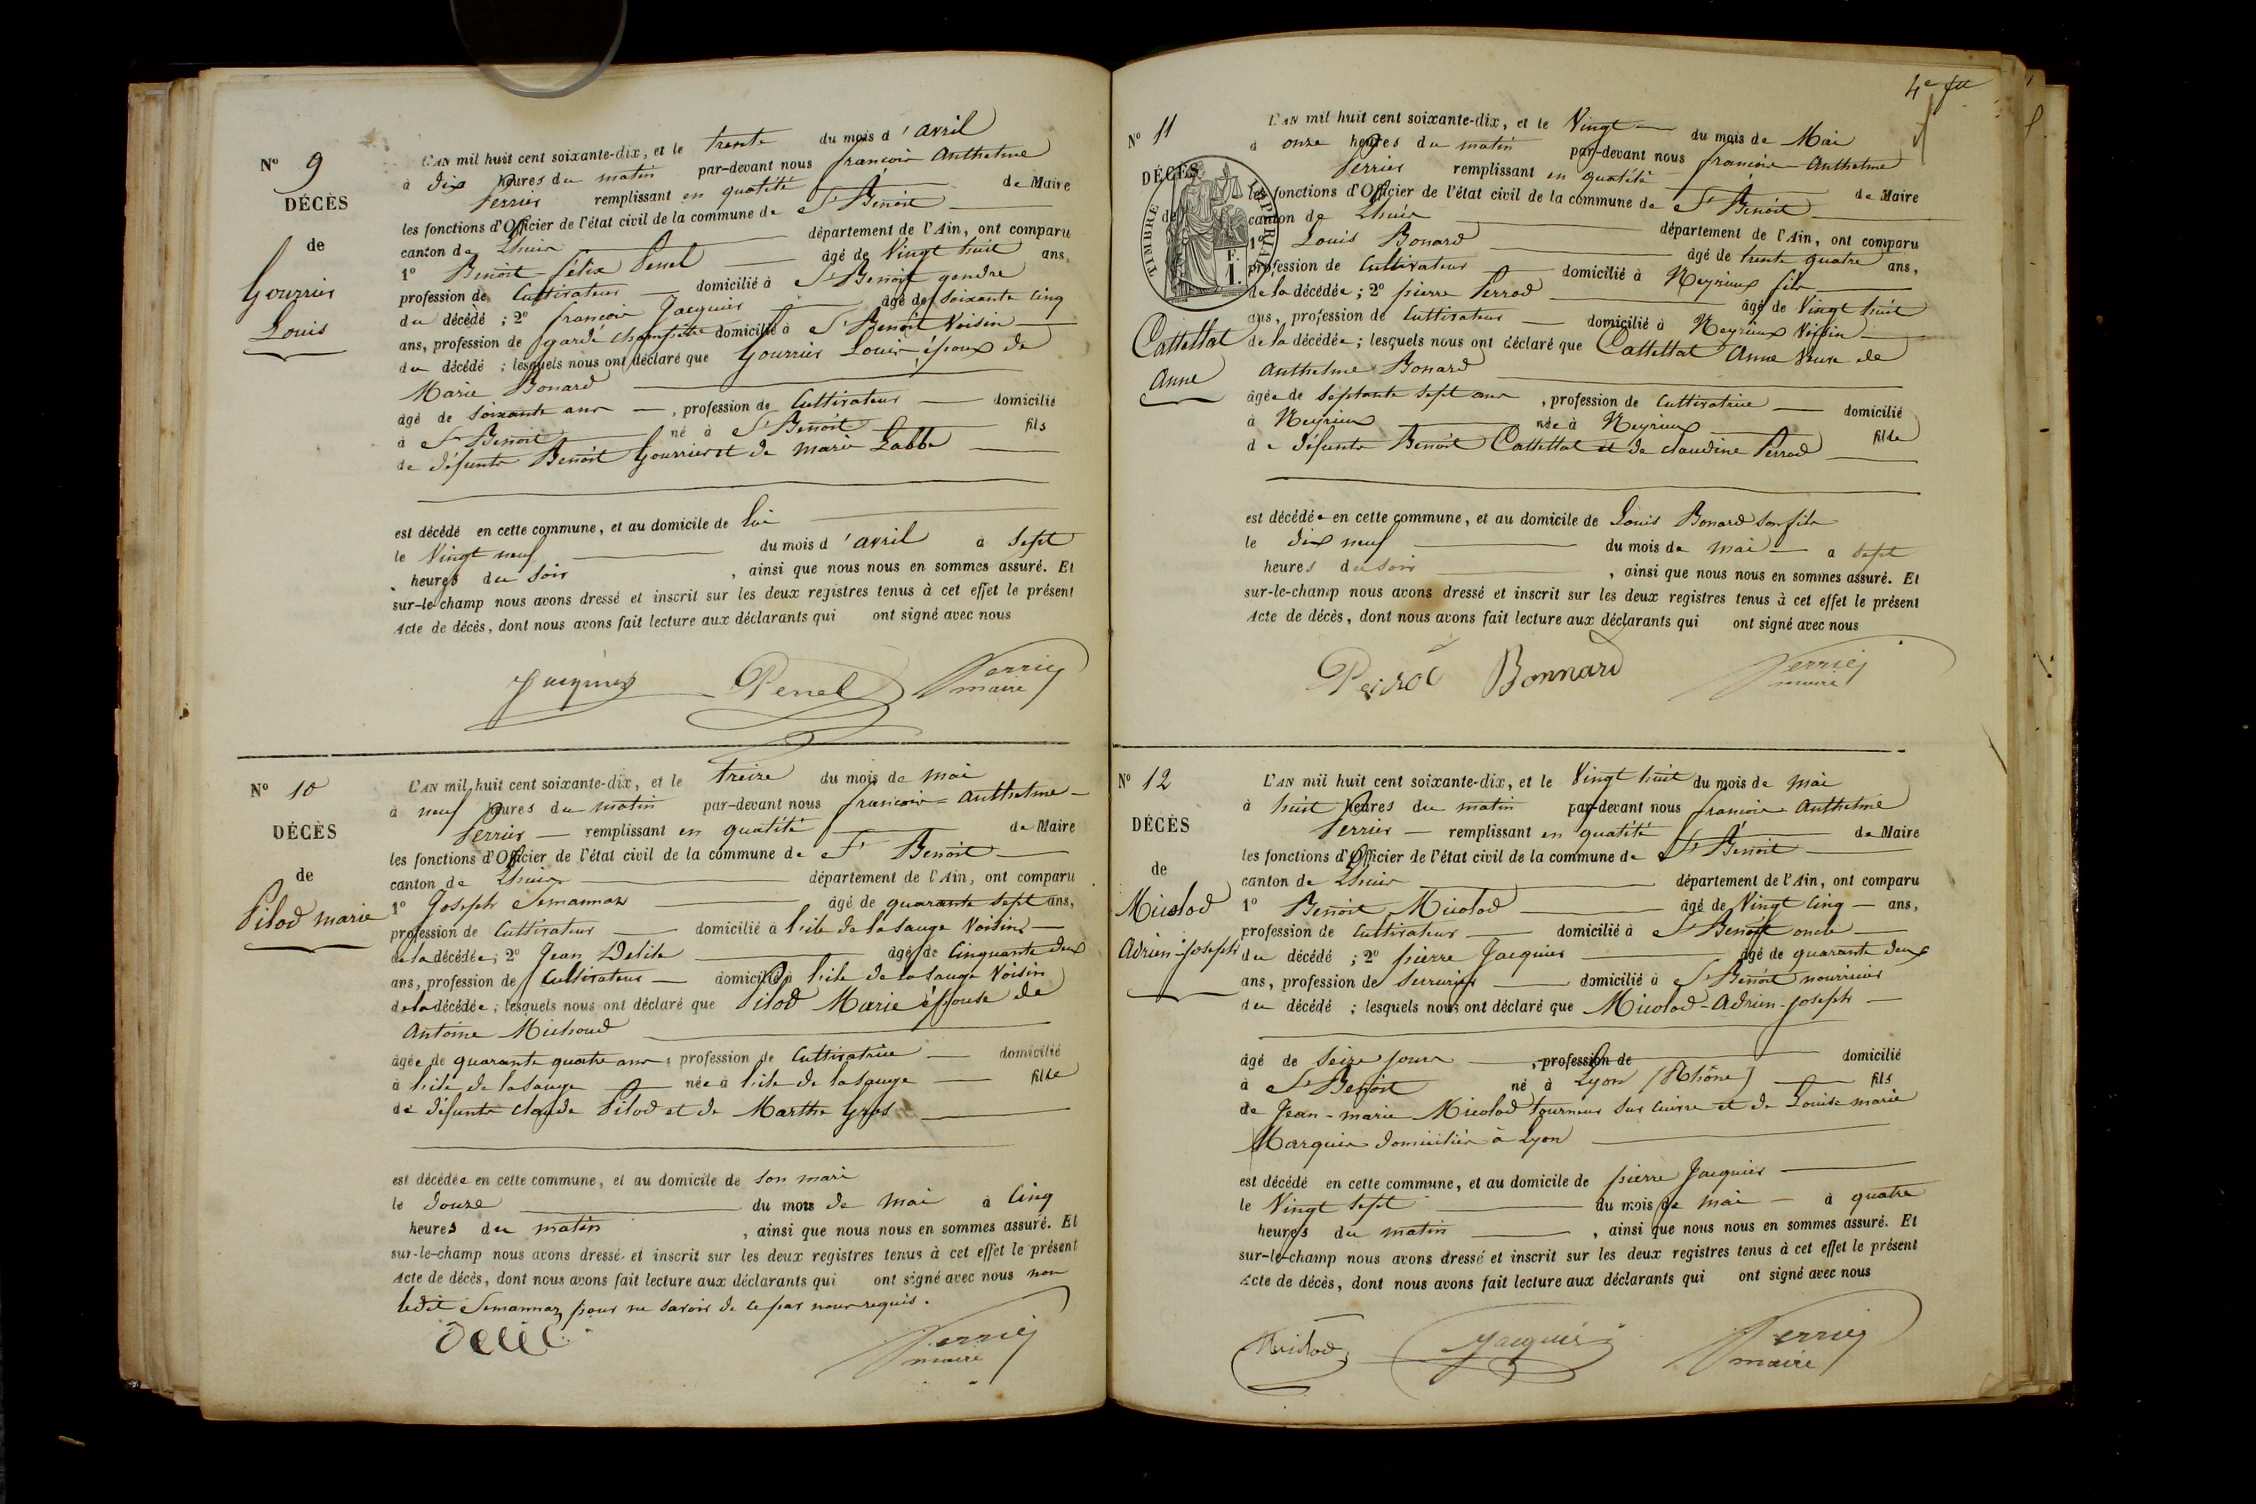 N° 9
DÉCÈS
de
Gourrier
Louis
L'AN mil huit cent soixante-dix, et le trente du mois d'avril
à dix heures du matin par-devant nous françois Anthelme
Perrier remplissant en qualité de Maire
les fonctions d'Officier de l'état civil de la commune de St Benoit
canton de Lhuis département de l'Ain, ont comparu
1° Benoit félix Penel âgé de Vingt huit ans,
profession de Cultivateur domicilié à St Benoit gendre
du décédé ; 2° françois Jacquier âgé de soixante cinq
ans, profession de garde champêtre domicilié à St Benoit Voisin
du décédé ; lesquels nous ont déclaré que Gourrier Louis époux de
Marie Bonard
âgé de soixante ans , profession de Cultivateur domicilié
à St Benoit né à St Benoit fils
de défunts Benoit Gourrier et de marie Labbe
est décédé en cette commune, et au domicile de lui
le Vingt neuf du mois d'avril à sept
heures du soir , ainsi que nous nous en sommes assuré. Et
sur-le-champ nous avons dressé et inscrit sur les deux registres tenus à cet effet le présent
Acte de décès, dont nous avons fait lecture aux déclarants qui ont signé avec nous
Jacquier Penel Perrier
maire
N° 10
DÉCÈS
de
Pilod marie
L'AN mil huit cent soixante-dix, et le treize du mois de mai
à neuf heures du matin par-devant nous françois = Anthelme
Perrier remplissant en qualité de Maire
les fonctions d'Officier de l'état civil de la commune de St Benoit
canton de Lhuis département de l'Ain, ont comparu
1° Joseph Semannaz âgé de quarante sept ans,
profession de Cultivateur domicilié à l'ile de la sauge Voisin
de la décédée ; 2° Jean Delile âgé de Cinquante deux
ans, profession de Cultivateur domicilié à l'ile de la sauge Voisin
de la décédée ; lesquels nous ont déclaré que Pilod Marie épouse de
Antoine Michoud
âgée de quarante quatre ans , profession de Cultivatrice domicilié
à l'ile de la sauge née à l'ile de la sauge fille
de défunts claude Pilod et de Marthe Gros
est décédée en cette commune, et au domicile de son mari
le douze du mois de mai à Cinq
heures du matin , ainsi que nous nous en sommes assuré. Et
sur-le-champ nous avons dressé et inscrit sur les deux registres tenus à cet effet le présent
Acte de décès, dont nous avons fait lecture aux déclarants qui ont signé avec nous non
ledit Semannaz pour ne savoir de ce par nous requis.
Perrier
maire
N° 11
DÉCÈS
de
Cattettat
Anne
TIMBRE IMPÉRIAL
F.
1.
L'AN mil huit cent soixante-dix, et le Vingt du mois de Mai
à onze heures du matin par-devant nous françois Anthelme
Perrier remplissant en qualité de Maire
les fonctions d'Officier de l'état civil de la commune de St Benoit
canton de Lhuis département de l'Ain, ont comparu
1° Louis Bonard âgé de trente quatre ans,
profession de Cultivateur domicilié à Neyrieux fils
de la décédée ; 2° pierre Perrod âgé de Vingt huit
ans, profession de Cultivateur domicilié à Neyrieux Voisin
de la décédée ; lesquels nous ont déclaré que Cattettat Anne Veuve de
Anthelme Bonard
âgée de septante sept ans , profession de Cultivatrice domicilié
à Neyrieux née à Neyrieux fille
de défunts Benoit Cattettat et de claudine Perrod
est décédée en cette commune, et au domicile de Louis Bonard son fils
le dix neuf du mois de mai à sept
heures du soir , ainsi que nous nous en sommes assuré. Et
sur-le-champ nous avons dressé et inscrit sur les deux registres tenus à cet effet le présent
Acte de décès, dont nous avons fait lecture aux déclarants qui ont signé avec nous
Bonnard Perrier
maire
N° 12
DÉCÈS
de
Micolod
Adrien-Joseph
L'AN mil huit cent soixante-dix, et le Vingt huit du mois de mai
à huit heures du matin par-devant nous françois Anthelme
Perrier remplissant en qualité de Maire
les fonctions d'Officier de l'état civil de la commune de St Benoit
canton de Lhuis département de l'Ain, ont comparu
1° Benoit Micolod âgé de Vingt Cinq ans,
profession de Cultivateur domicilié à St Benoit oncle
du décédé ; 2° pierre Jacquier âgé de quarante deux
ans, profession de serrurier domicilié à St Benoit nourricier
du décédé ; lesquels nous ont déclaré que Micolod-Adrien-Joseph
âgé de seize jours , profession de domicilié
à St Benoit né à Lyon (Rhône) fils
de Jean-marie Micolod tourneur sur cuivre et de Louise marie
Marquis domiciliés à Lyon
est décédé en cette commune, et au domicile de pierre Jacquier
le Vingt sept du mois de mai à quatre
heures du matin , ainsi que nous nous en sommes assuré. Et
sur-le-champ nous avons dressé et inscrit sur les deux registres tenus à cet effet le présent
Acte de décès, dont nous avons fait lecture aux déclarants qui ont signé avec nous
Micolod Jacquier Perrier
maire